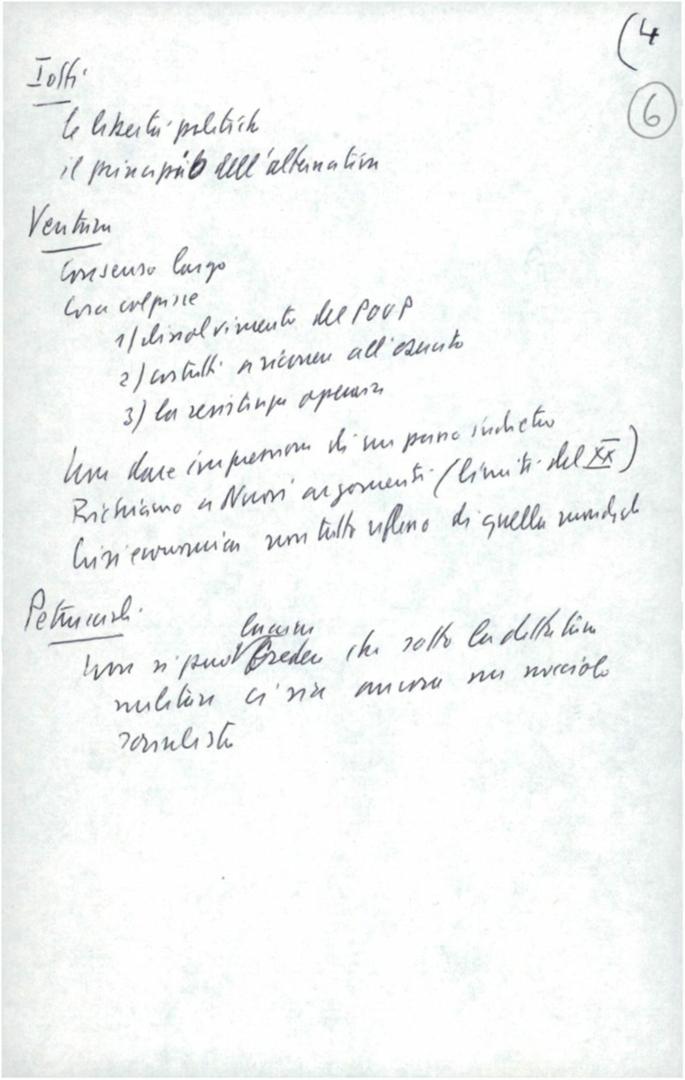 (4
6
Iotti
le libertà politiche
il principio dell'alternativa
Ventura
Consenso largo
Cosa colpisce
1) dissolvimento del POUP
2) costretti a ricorrere all'esercito
3) la resistenza operaia
Non dare impressione di un passo indietro
Richiamo a Nuovi argomenti (limiti del XX)
Crisi economica non tutto riflesso di quella mondiale
Petruccioli
lasciar
Non si può creder che sotto la dittatura
militare ci sia ancora un nocciolo
socialista